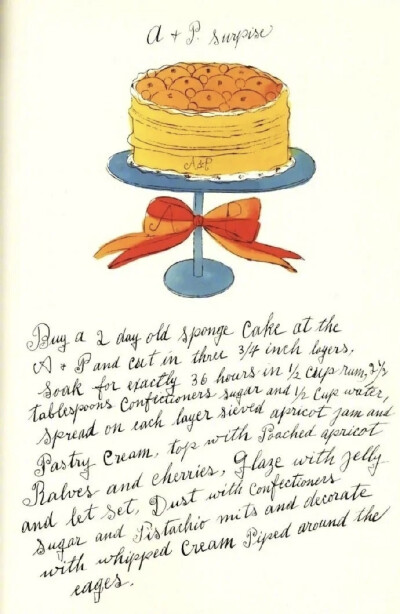 A + P. Surpise
A&P
A P
Buy a 2 day old sponge Cake at the
A + P and cut in three 3/4 inch layers,
Soak for exactly 36 hours in 1/2 cup rum, 2 1/2
tablespoons Confectioners sugar and 1/2 Cup water,
Spread on each layer sieved apricot jam and
Pastry Cream, top with Poached apricot
Halves and cherries, Glaze with jelly
and let set, Dust with Confectioners
sugar and Pistachio nuts and decorate
with whipped Cream Piped around the
edges.